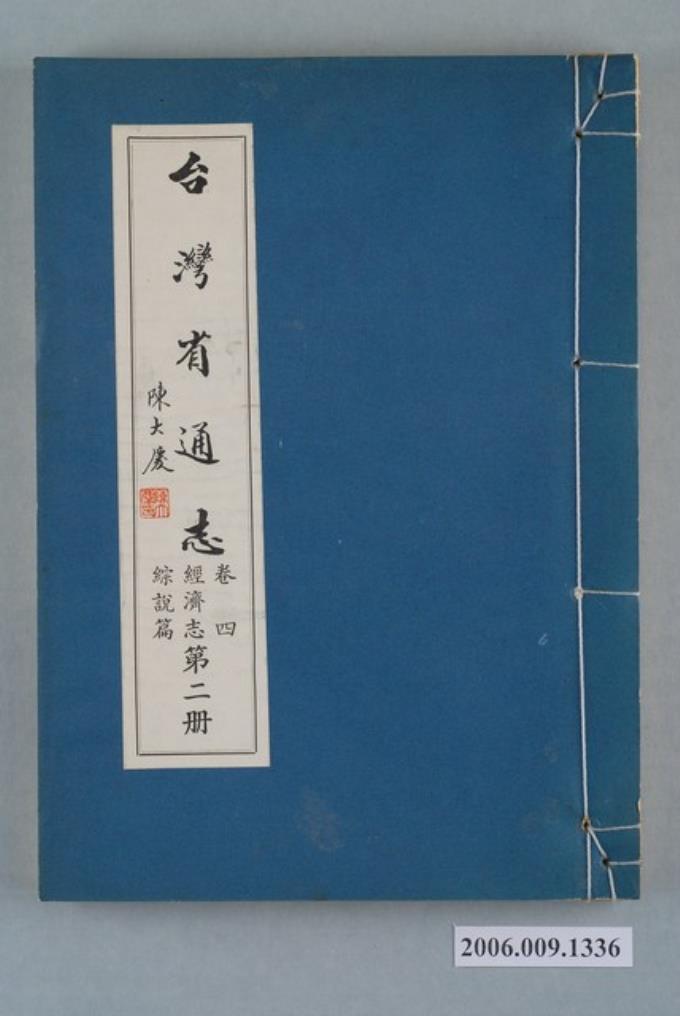 台灣省通志
卷四
經濟志第二册
綜說篇
陳大慶
2006.009.1336